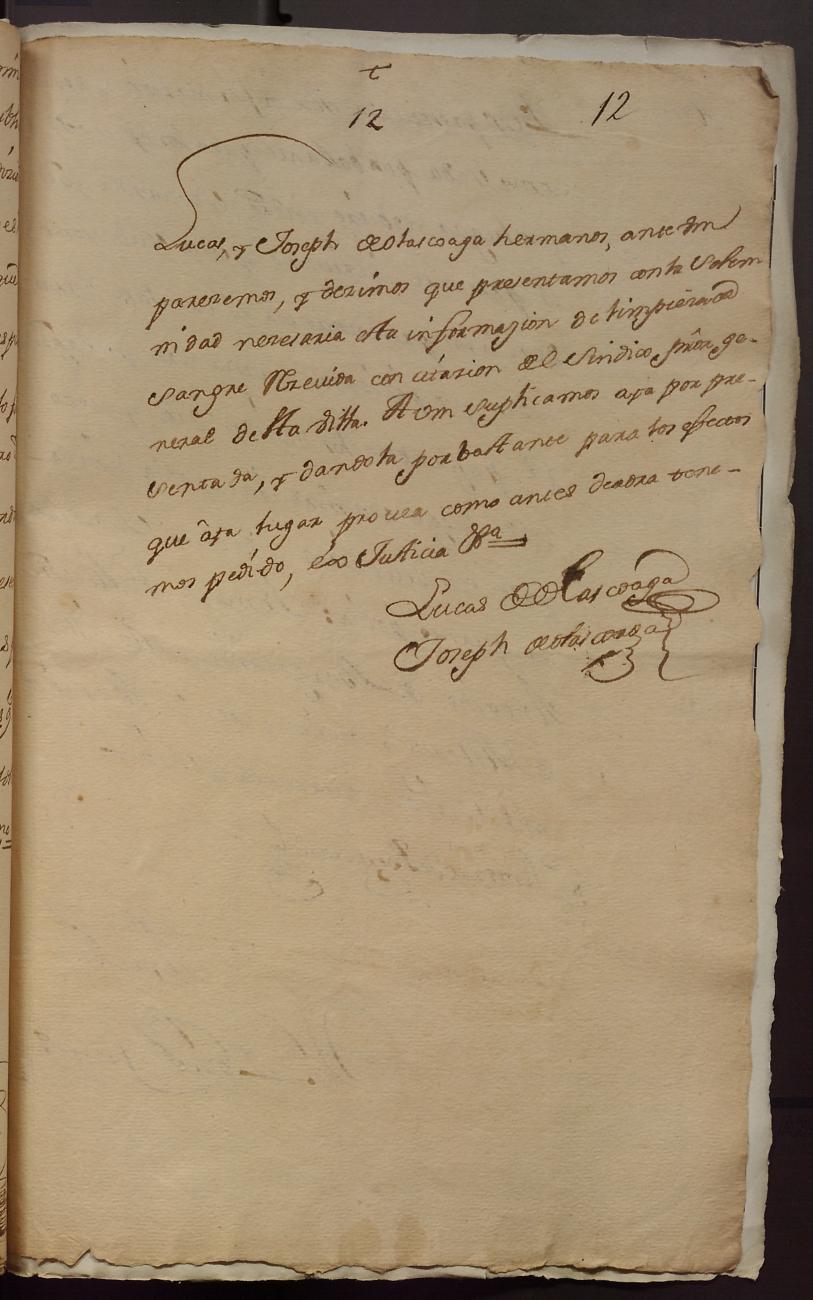 12
12
Lucas, y Joseph de Olascoaga hermanos, ante vm
pareremos, y dezimos que presentamos con la Solem
nidad neresaria esta informazion de limpieza de
Sangre Rrevida con citazion del Sindico prõr ge-
neral de Sta villa. A vm suplicamos aya por pre-
sentada, y dandola por bastante para los efectos
que aya lugar provea como antes de aora tene-
mos pedido, es Justicia &ª
Lucas de Olascoaga
Joseph de Olascoaga